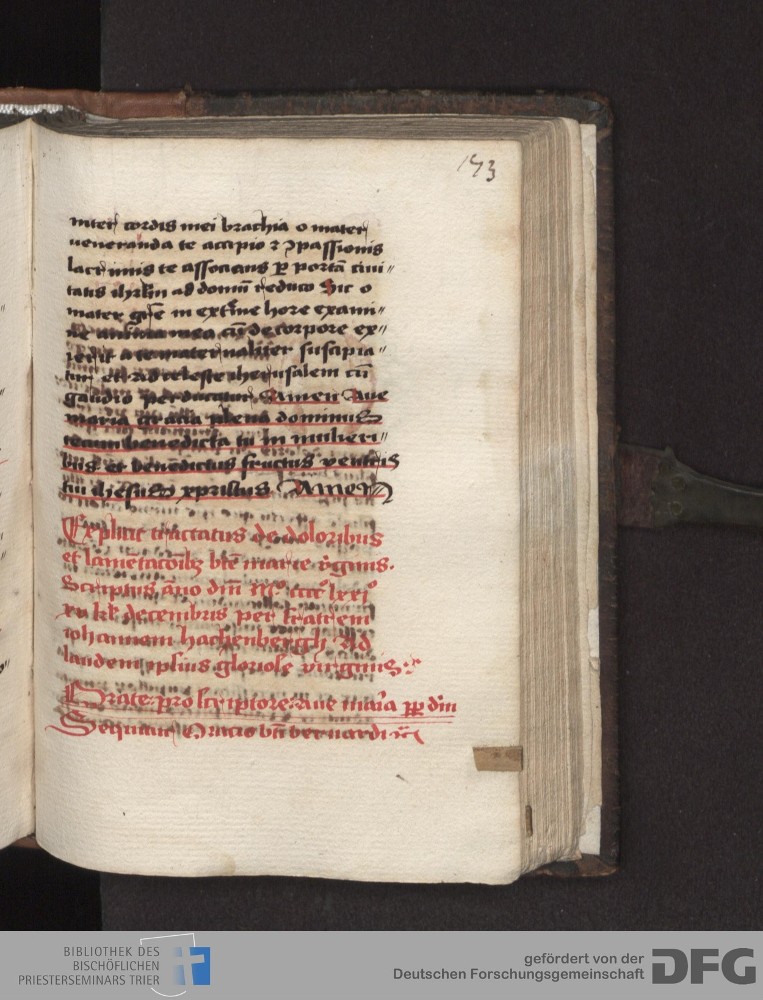 173
inter cordis mei brachia o mater
ueneranda te accipio ⁊ ꝯpassionis
lacrimis te associans ꝑ portā ciui〃
tatis ihrlm̄ ad domū reduco Sic o
mater gꝛ̄e in extͥme hore exami〃
ne anima mea cū de corpore ex〃
ierit a te maternaliter suscipia〃
tur et ad celeste iherusalem cū
gaudio perducatur Amen Aue
maria gracia plena dominus
tecum benedicta tu in mulieri〃
bus et benedictus fructus ventris
tui ihesus xpristus Amen
Explicit tractatus de doloribus
et lamētacōibꝫ btē marie v̓ginis.
Scriptus āno dn̄i Mº ccccº lxxiº
xv kl̄ decembris per fratrem
iohannem hachenbergh Ad
laudem ipsius gloriose virginis
Orate pro scriptore aue maīa ꝓpt̄ dn̄m
Sequitur Oracio bt̄i bernardi
BIBLIOTHEK DES
BISCHÖFLICHEN
PRIESTERSEMINARS TRIER
gefördert von der
Deutschen Forschungsgemeinschaft
DFG